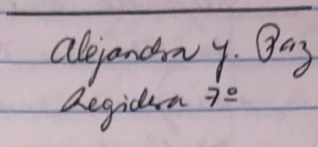 Alejandra y. Paz
Regidora 7º